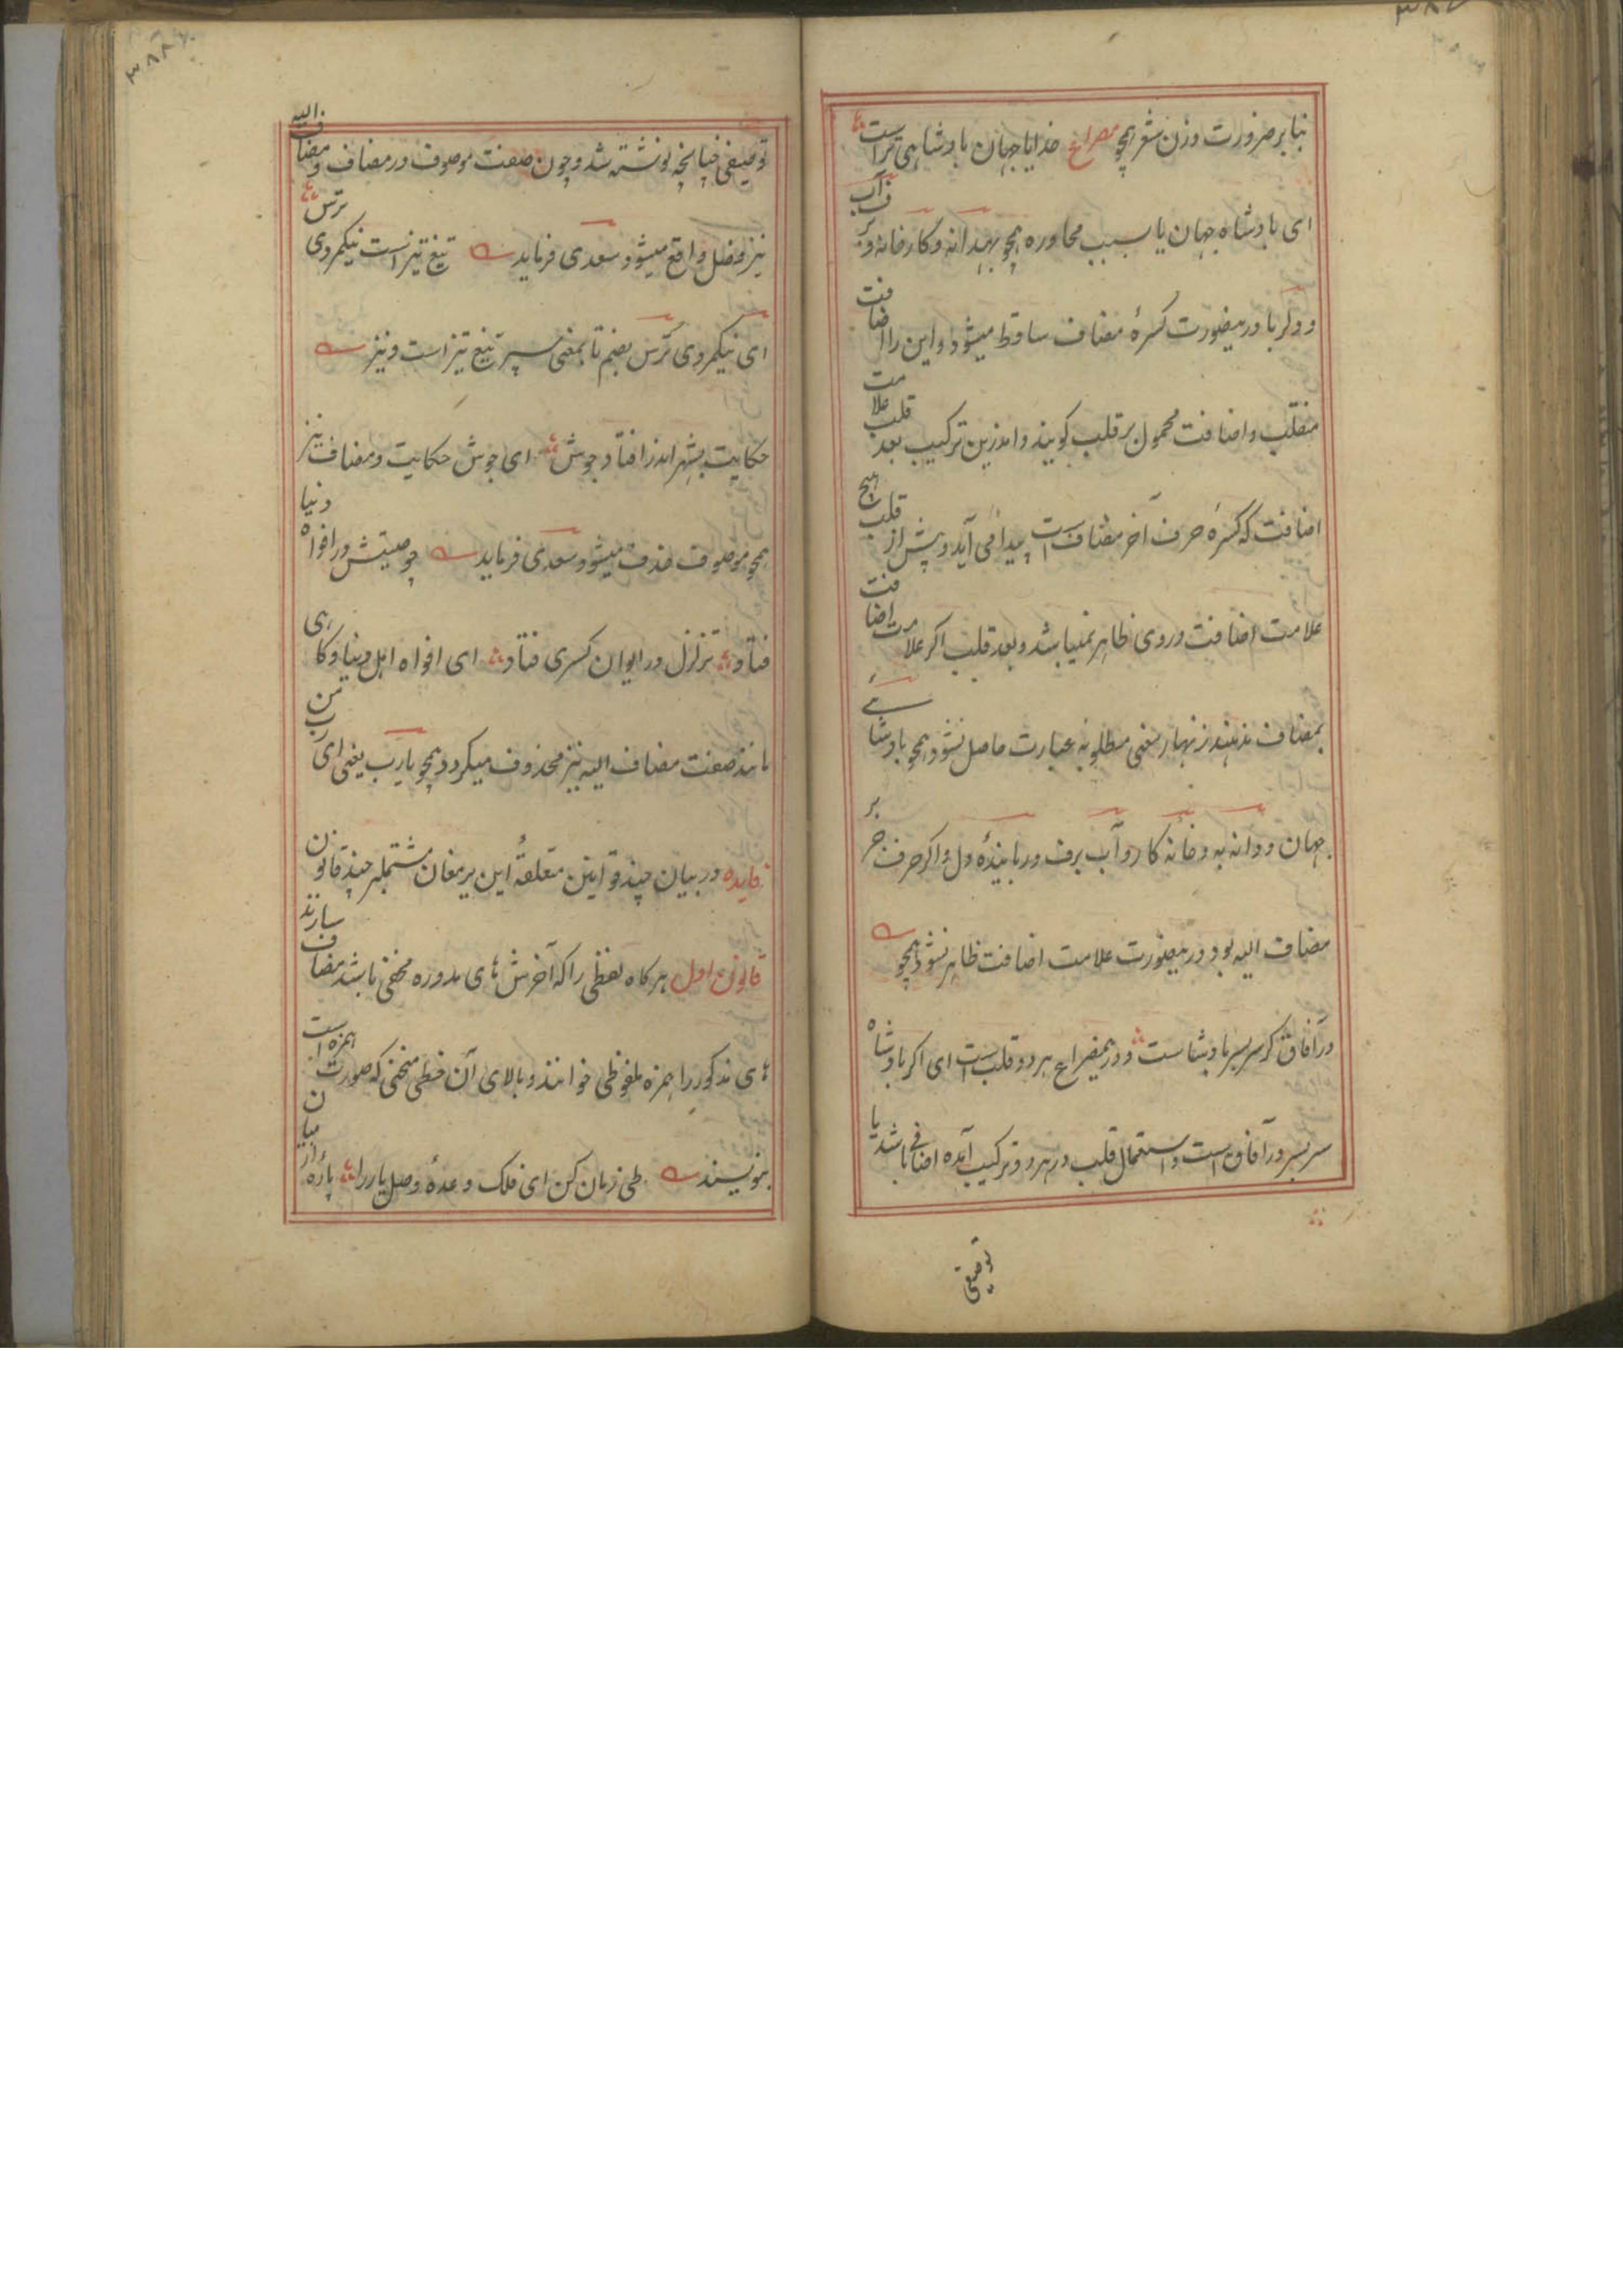 بنابر ضرورت وزن شعر همچو مصراع خدایا جهان پادشاهی تراست
ای پادشاه جهان یا بسبب محاوره همچو بهدانه و کارخانه و برف آب
و دلربا درینصورت کسرهٔ مضاف ساقط میشود و این را اضافت
منقلب و اضافت محمول بر قلب گویند و اندرین ترکیب بعد قلب علامت
اضافت که کسرهٔ حرف آخر مضاف است پیدا می آید و پیش از قلب هیچ
علامت اضافت در وی ظاهر نمیباشد و بعد قلب اگر علامت اضافت
بمضاف ندهند زنهار معنی مطلوبه عبارت حاصل نشود همچو پادشاه
جهان و دانه به و خانه کار و آب برف و ربایندهٔ دل و اگر حرف جر بر
مضاف الیه بود درینصورت علامت اضافت ظاهر نشود همچو
در آفاق گر سر بسر پادشاست و در همصراع هر دو قلب است ای اگر پادشاه
سر بسر در آفاق است و استعمال قلب در هر دو ترکیب آمده اضافی باشد یا
توصیفی
توصیفی چنانچه نوشته شد و چون صفت موصوف در مضاف و مضاف الیه
نیز فصل واقع میشود سعدی فرماید تیغ تیز است نیکمردی ترس
ای نیکمردی ترس بضم تا بمعنی سپر تیغ تیز است و نیز
حکایت بشهر اندر افتاد جوش ای جوش حکایت و مضاف نیز
همچو موصوف حذف میشود سعدی فرماید چو صیتش در افواه دنیا
فتاد تزلزل در ایوان کسری فتاد ای افواه اهل دنیا و گاهی
مانند صفت مضاف الیه نیز محذوف میگردد همچو یا رب یعنی ای رب من
فایده در بیان چند قوانین متعلقهٔ این یرمغان مشتمله چند قانون
قانون اول هر گاه لفظی را که آخرش های مدوره مخفی باشد مضاف سازند
های مذکور را همزه ملفوظی خوانند و بالای آن خطی منحنی که صورت همزه است
بنویسند طی زمان کن ای فلک وعدهٔ وصل یار را پارهٔ از میان